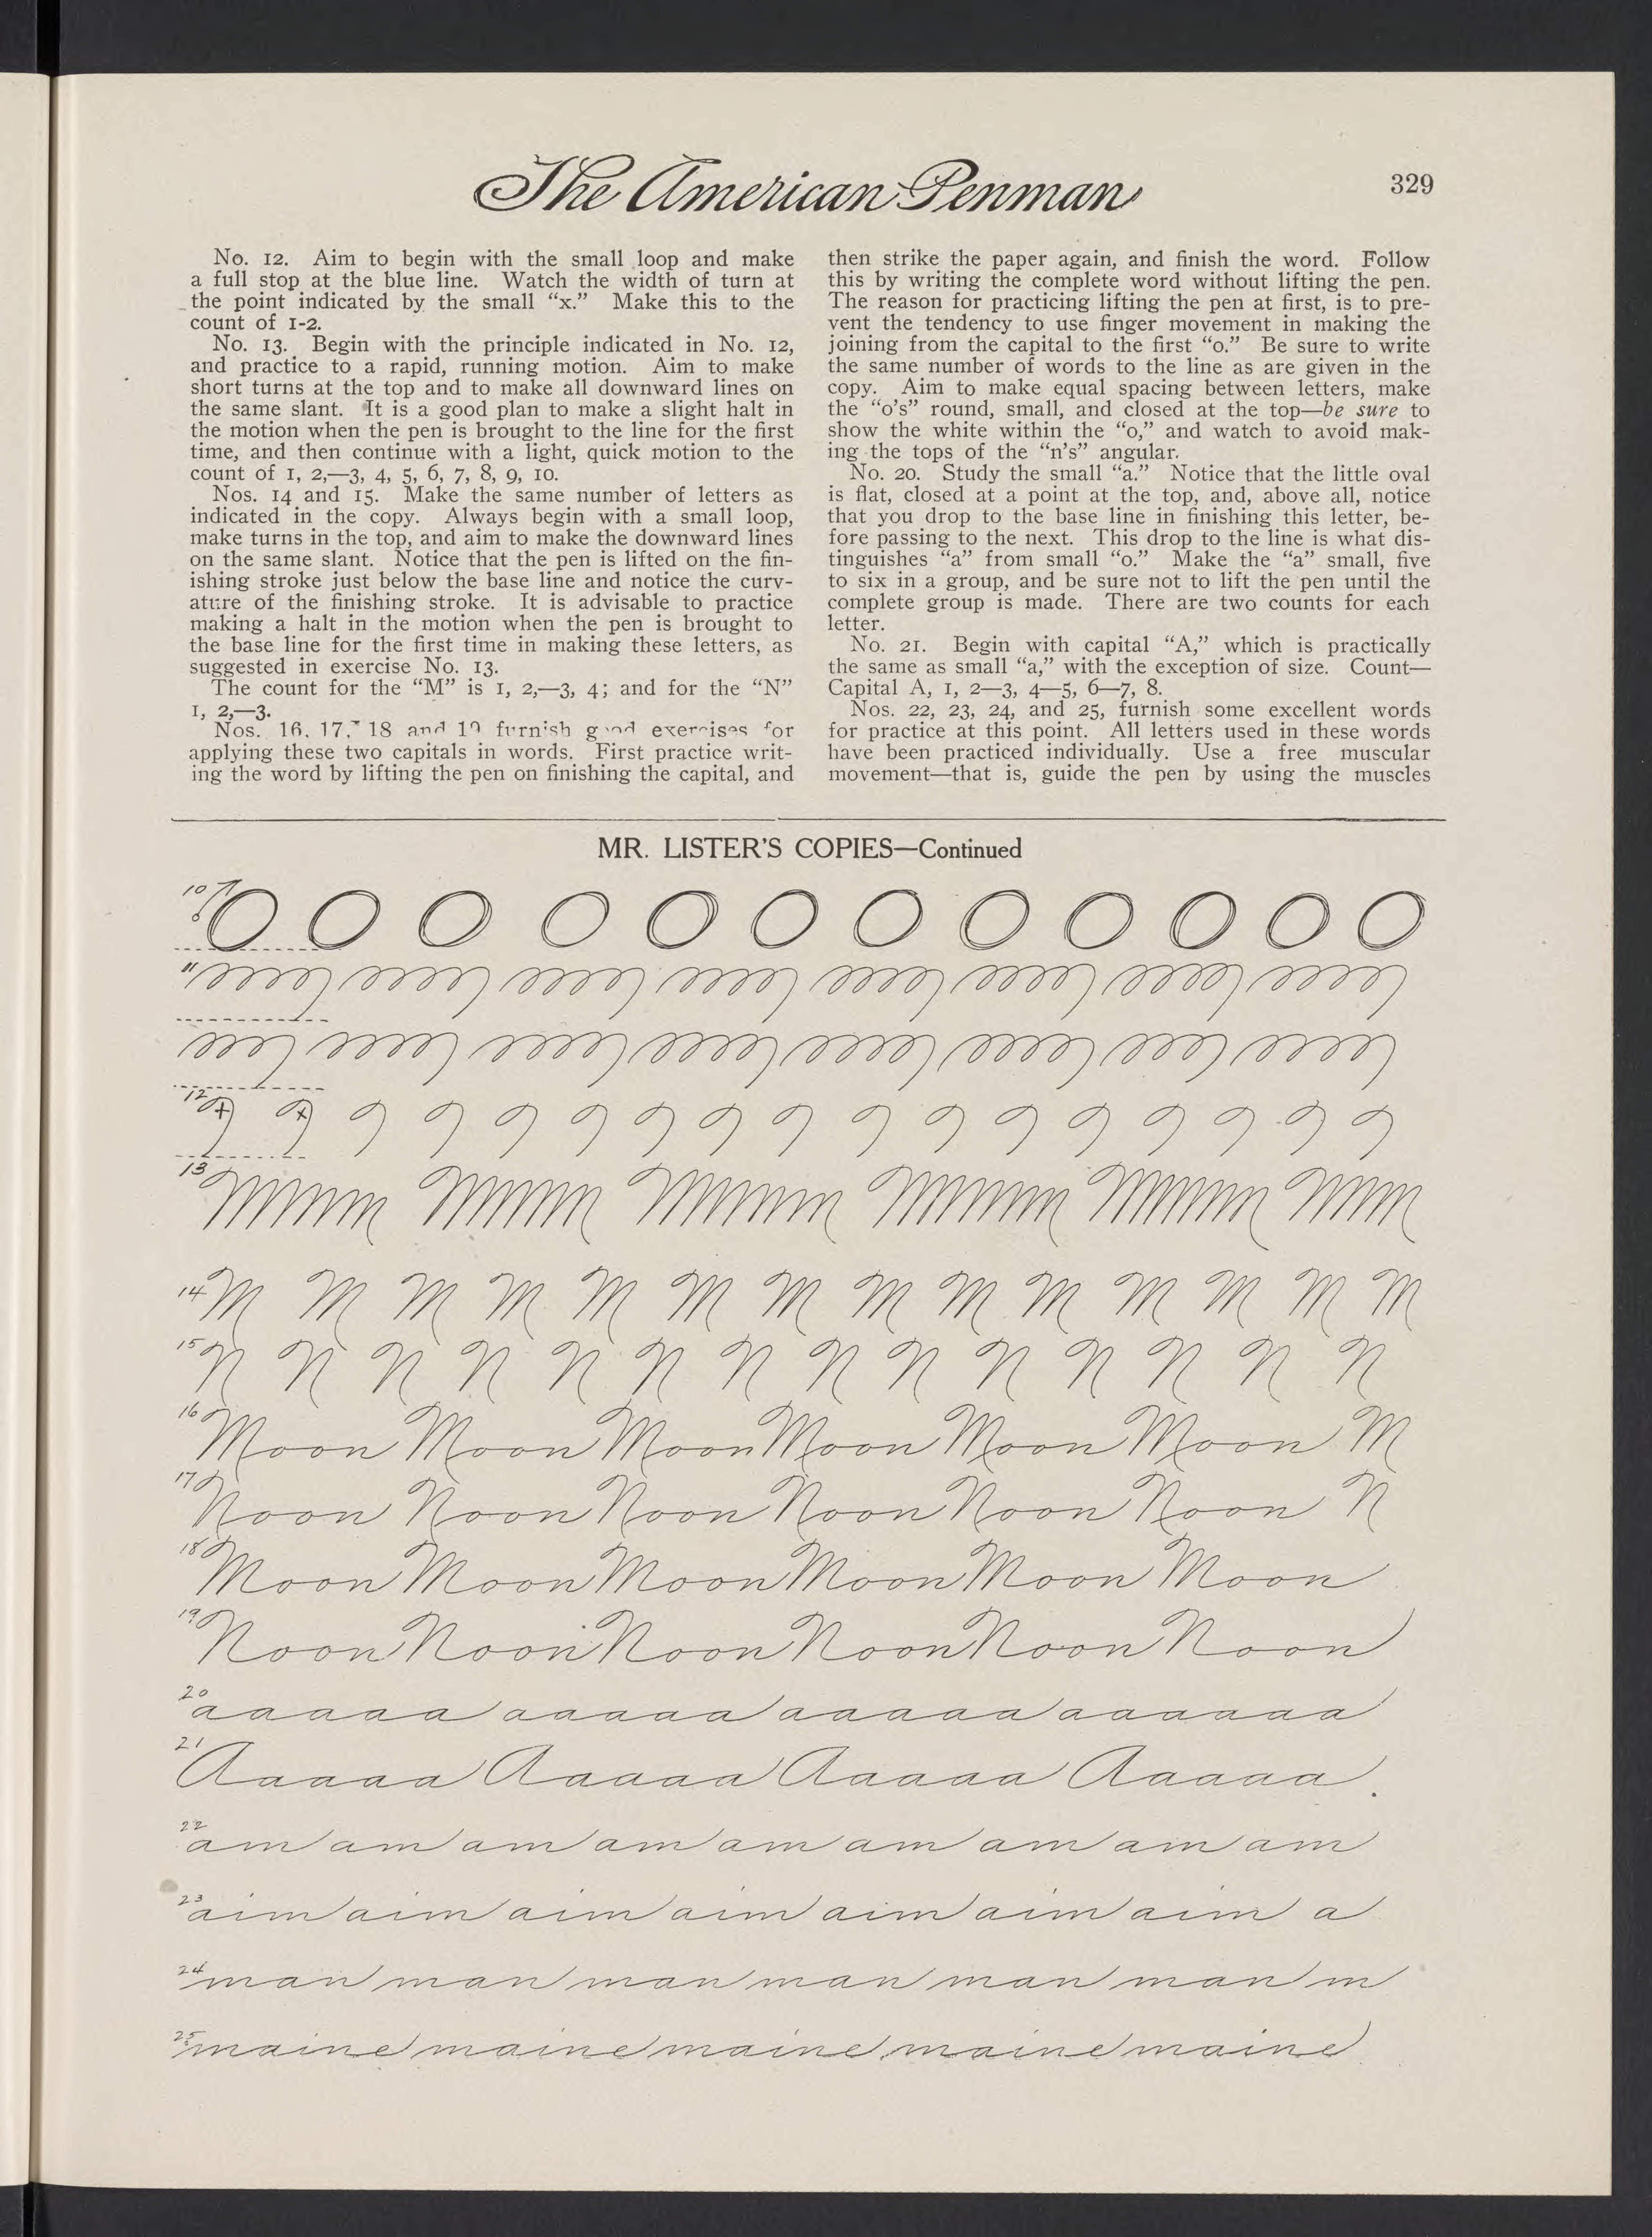 The American Penman
329
No. 12. Aim to begin with the small loop and make
a full stop at the blue line. Watch the width of turn at
the point indicated by the small “x.” Make this to the
count of 1-2.
No. 13. Begin with the principle indicated in No. 12,
and practice to a rapid, running motion. Aim to make
short turns at the top and to make all downward lines on
the same slant. It is a good plan to make a slight halt in
the motion when the pen is brought to the line for the first
time, and then continue with a light, quick motion to the
count of 1, 2,—3, 4, 5, 6, 7, 8, 9, 10.
Nos. 14 and 15. Make the same number of letters as
indicated in the copy. Always begin with a small loop,
make turns in the top, and aim to make the downward lines
on the same slant. Notice that the pen is lifted on the fin-
ishing stroke just below the base line and notice the curv-
ature of the finishing stroke. It is advisable to practice
making a halt in the motion when the pen is brought to
the base line for the first time in making these letters, as
suggested in exercise No. 13.
The count for the “M” is 1, 2,—3, 4; and for the “N”
1, 2,—3.
Nos. 16, 17, 18 and 19 furnish good exercises for
applying these two capitals in words. First practice writ-
ing the word by lifting the pen on finishing the capital, and
then strike the paper again, and finish the word. Follow
this by writing the complete word without lifting the pen.
The reason for practicing lifting the pen at first, is to pre-
vent the tendency to use finger movement in making the
joining from the capital to the first “o.” Be sure to write
the same number of words to the line as are given in the
copy. Aim to make equal spacing between letters, make
the “o’s” round, small, and closed at the top—be sure to
show the white within the “o,” and watch to avoid mak-
ing the tops of the “n’s” angular.
No. 20. Study the small “a.” Notice that the little oval
is flat, closed at a point at the top, and, above all, notice
that you drop to the base line in finishing this letter, be-
fore passing to the next. This drop to the line is what dis-
tinguishes “a” from small “o.” Make the “a” small, five
to six in a group, and be sure not to lift the pen until the
complete group is made. There are two counts for each
letter.
No. 21. Begin with capital “A,” which is practically
the same as small “a,” with the exception of size. Count—
Capital A, 1, 2—3, 4—5, 6—7, 8.
Nos. 22, 23, 24, and 25, furnish some excellent words
for practice at this point. All letters used in these words
have been practiced individually. Use a free muscular
movement—that is, guide the pen by using the muscles
MR. LISTER’S COPIES—Continued
10 O O O O O O O O O O O O
11
12 x x
13
14 M M M M M M M M M M M M M M
15 N N N N N N N N N N N N N N
16 Moon Moon Moon Moon Moon Moon M
17 Noon Noon Noon Noon Noon Noon N
18 Moon Moon Moon Moon Moon Moon
19 Noon Noon Noon Noon Noon Noon
20 aaaaaa aaaaaa aaaaaa aaaaaaa
21 Aaaaaa Aaaaaa Aaaaaa Aaaaaa
22 am am am am am am am am am
23 aim aim aim aim aim aim aim a
24 man man man man man man m
25 maine maine maine maine maine